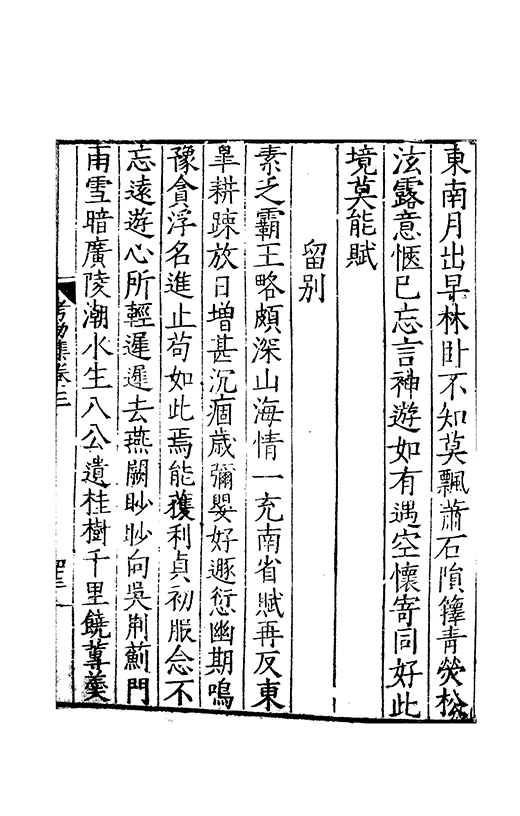 東南月出早林卧不知莫飄蕭石隕籜青熒松
泫露意愜已忘言神遊如有遇空懷寄同好此
境莫能賦
留别
素乏霸王略頗深山海情一充南省賦再反東
臯耕踈放日增甚沉痼歲彌嬰好遯愆幽期鳴
豫貪浮名進止苟如此焉能獲利貞初服念不
忘遠遊心所輕遲遲去燕闕眇眇向吳荆薊門
雨雪暗廣陵潮水生八公遺桂樹千里饒蓴羹
考功集卷二